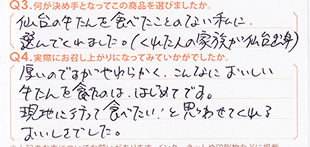 Q3.何が決め手となってこの商品を選びましたか。
仙台の牛たんを食べたことのない私に、
選んでくれました。(くれた人の家族が仙台出身)
Q4.実際にお召し上がりになってみていかがでしたか。
厚いのですがやわらかく、こんなにおいしい
牛たんを食たのは、はじめてです。
現地に行って食べたい!と思わせてくれる
おいしさでした。